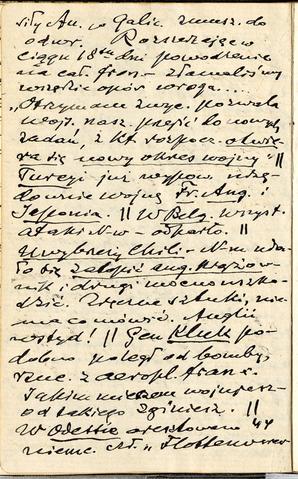 siły Au. w Galic. zmusz. do
odwr. Rozszerzając w
ciągu 18tu dni powodzenie
na cał. fron. – złamaliśmy
wszędzie opór wroga....
„Otrzyman zwyc. pozwala
wojs. nasz. przejść do nowych
zadań, z kt. rozpocz. otwie-
ra się nowy okres wojny" ||
Turcyi już wypow. urzę-
downie wojnę Fr. Ang. i
Japonia. || W Belg. wszyst.
ataki N-w – odparto. ||
U wybrzeży Chili – N-m uda-
ło się zatopić ang. krążow-
nik i drugi mocno uszko-
dzić. Zręczne sztuki, nie-
ma co mówić. Anglii
wstyd! || Gen Kluk po-
dobno poległ od bomby,
rzuc. z aeropl. franc.
Jakim mieczem wojujesz –
od takiego zginiesz. ||
W Odessie aresztowano 44
niemc. czł. „Flottenverein